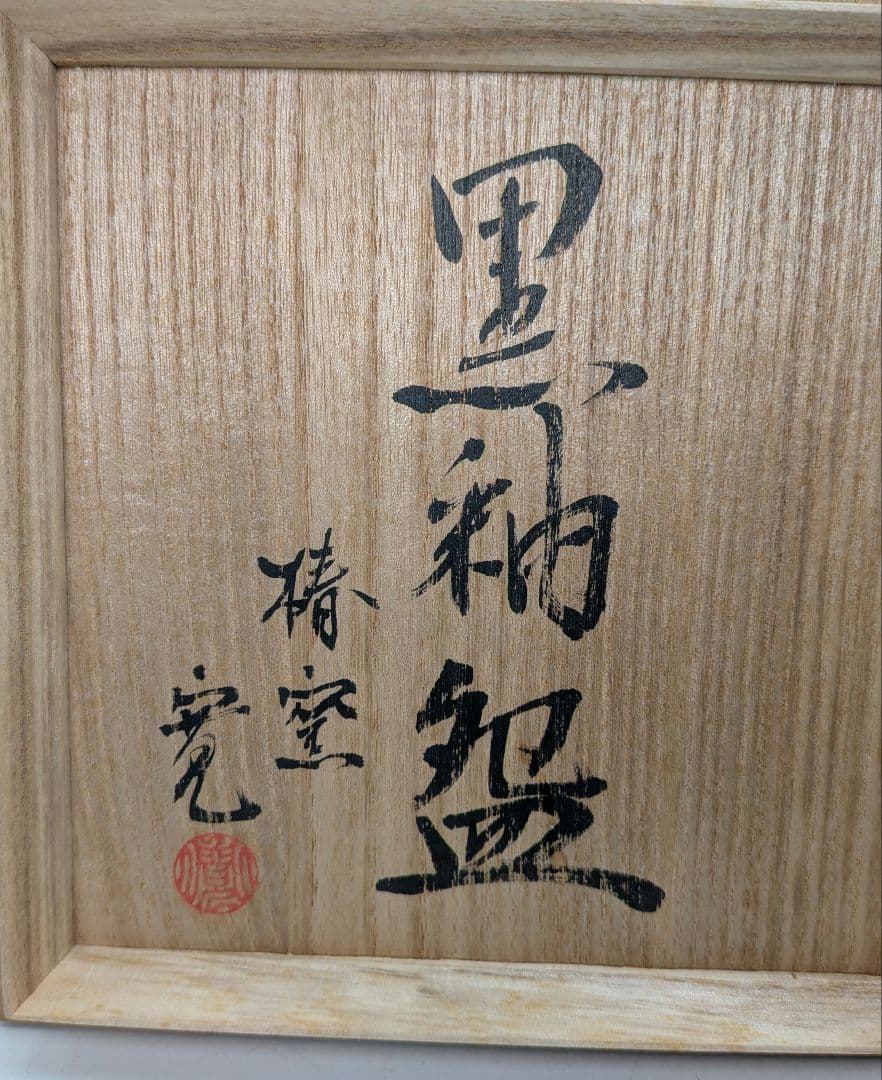 黒釉盌
椿窯
寛